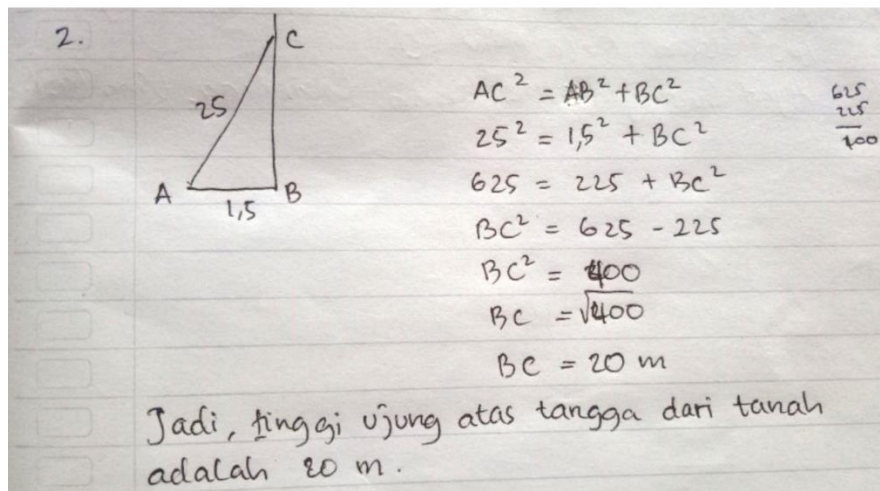 2.
C
25
A
B
1,5
AC² = AB² + BC²
25² = 1,5² + BC²
625 = 225 + BC²
BC² = 625 - 225
BC² = 400
BC = √400
BC = 20 m
625
225
400
Jadi, tinggi ujung atas tangga dari tanah
adalah 20 m.